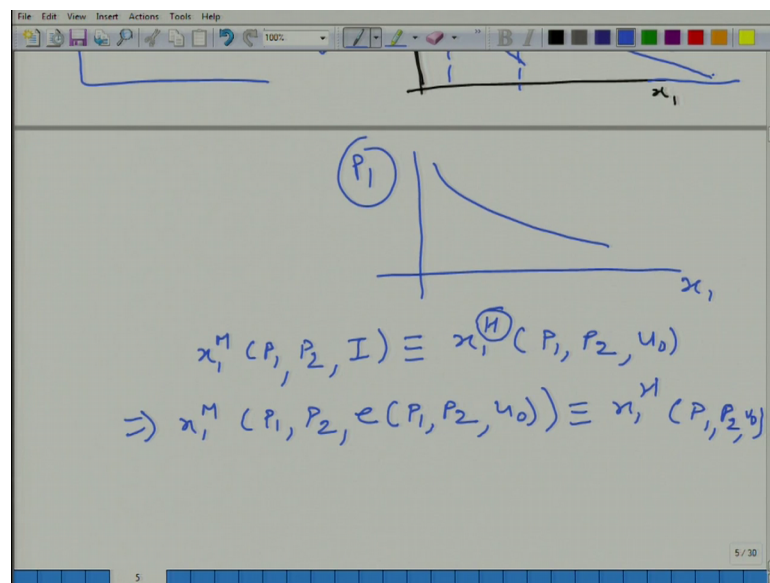 File Edit View Insert Actions Tools Help
100%
B I
x₁
P₁
x₁
x₁ᴹ (P₁, P₂, I) ≡ x₁ᴴ (P₁, P₂, u₀)
⇒ x₁ᴹ (P₁, P₂, e(P₁, P₂, u₀)) ≡ x₁ᴴ (P₁, P₂, u₀)
5 / 30
5